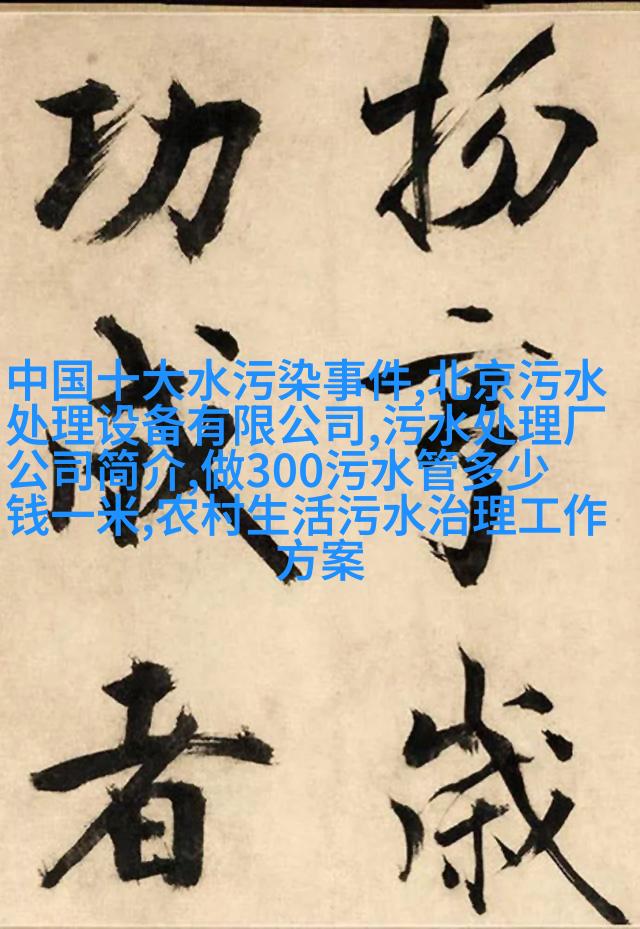 歲
功成者
中国十大水污染事件,北京污水
处理设备有限公司,污水处理厂
公司简介,做300污水管多少
钱一米,农村生活污水治理工作
方案